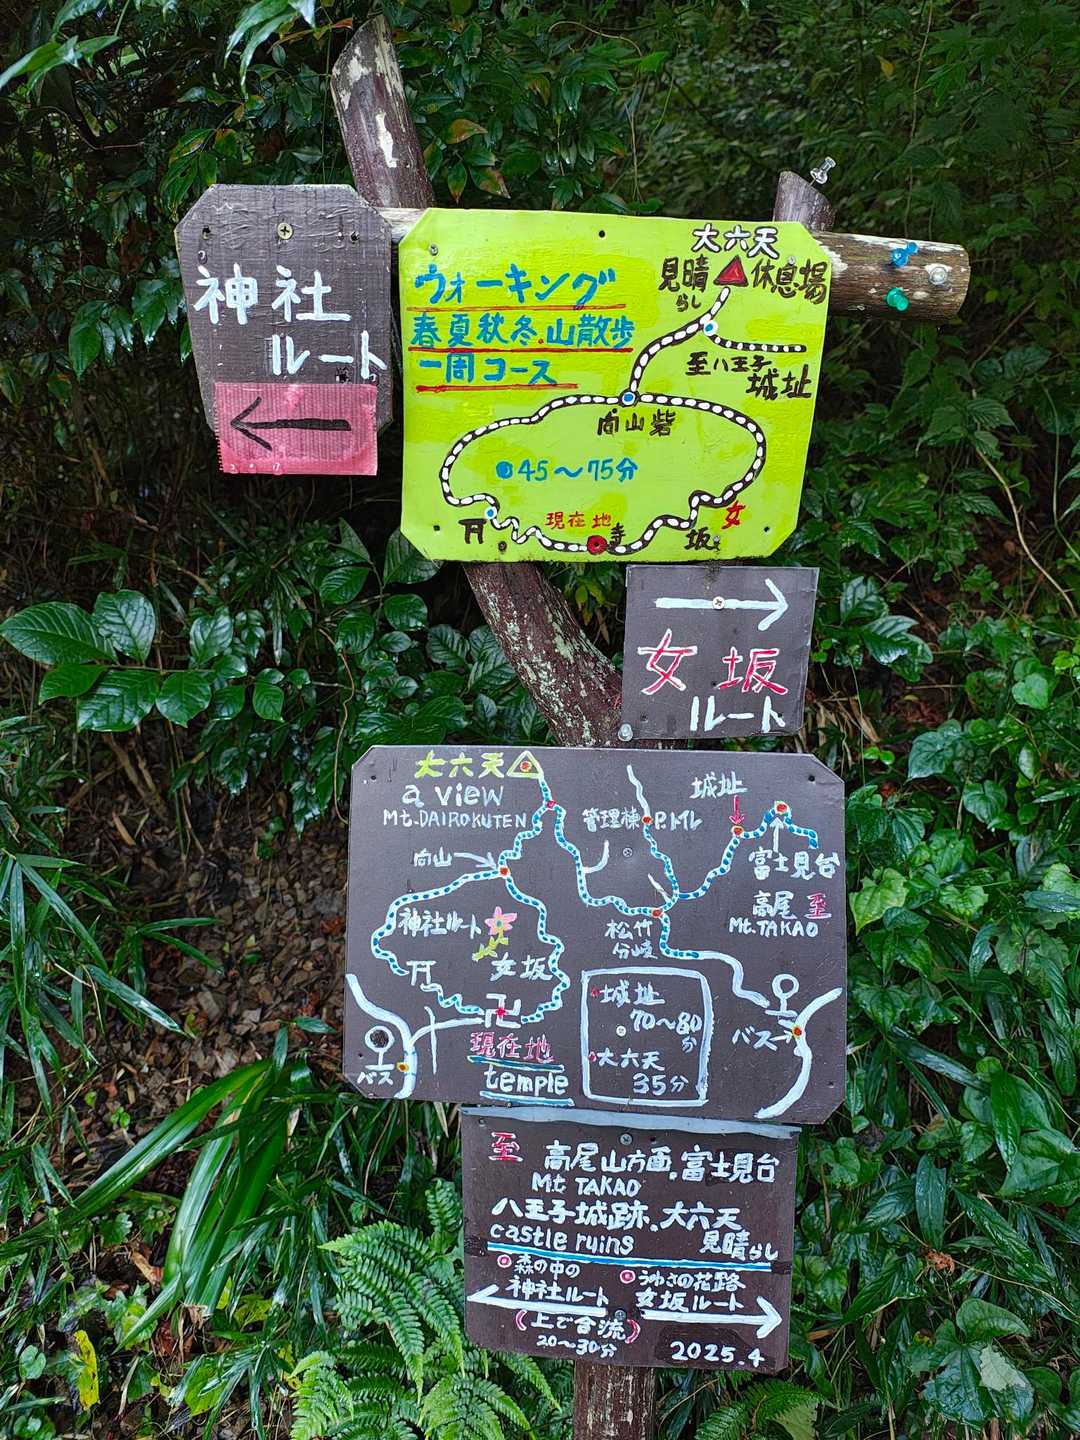 神社
ルート
大六天
見晴
らし
休息場
ウォーキング
春夏秋冬.山散歩
一周コース
至八王子
城址
向山砦
●45～75分
現在地
寺
女
坂
女坂
ルート
大六天
a view
Mt.DAIROKUTEN
向山
管理棟
P.トイレ
城址
富士見台
高尾 至
Mt.TAKAO
神社ルート
女坂
松竹
分岐
卍
現在地
temple
城址
70～80
分
大六天
35分
バス
バス
至 高尾山方面.富士見台
Mt TAKAO
八王子城跡、大六天
castle ruins 見晴らし
森の中の
神社ルート
うゆさの花路
女坂ルート
(上で合流)
20～30分
2025.4